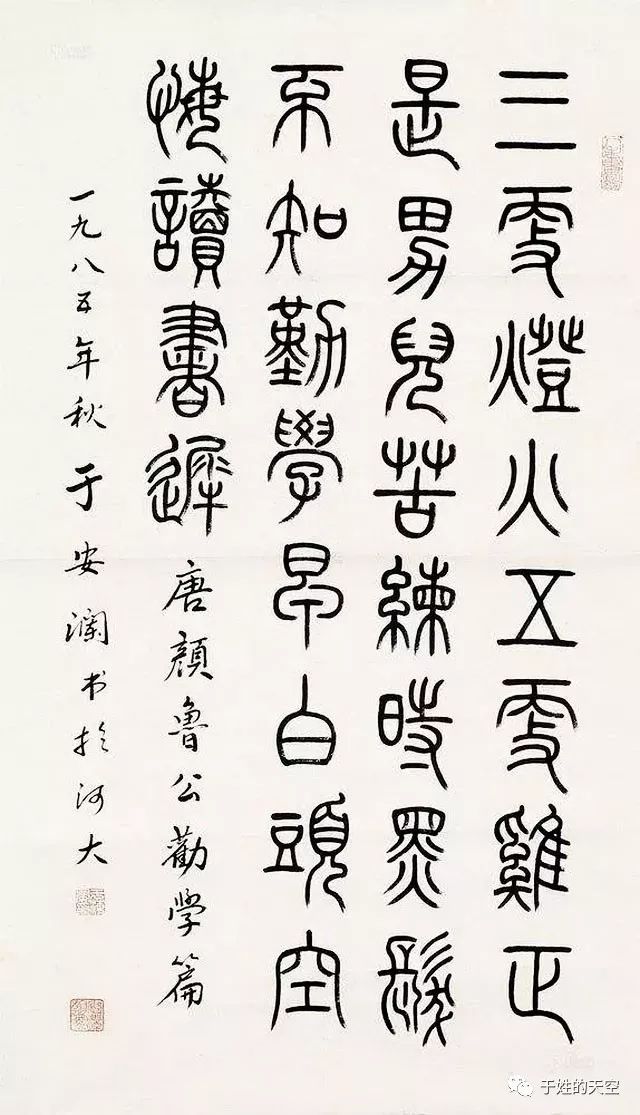 三更燈火五更雞正
是男兒苦練時黑髮
不知勤學早白頭空
悔讀書遲 唐顏魯公勸学篇
一九八五年秋于安瀾书於河大
于姓的天空